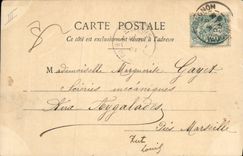 CARTE POSTALE
Ce côté est exclusivement réservé à l'adresse
Mademoiselle Marguerite Gayet
Scieries mécaniques
Rue Aygalades
Près Marseille